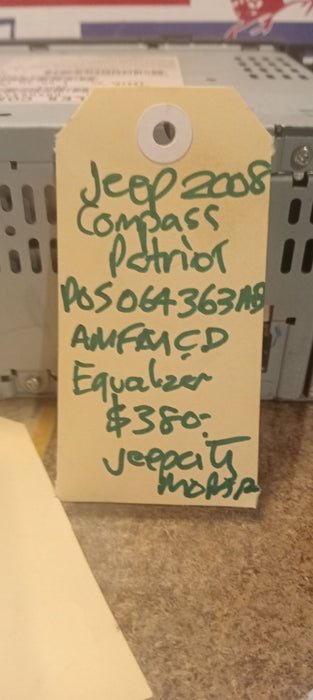 Jeep 2008
Compass
Patriot
P05064363AB
AMFMCD
Equalizer
$380-
Jeepcity
MOPAR